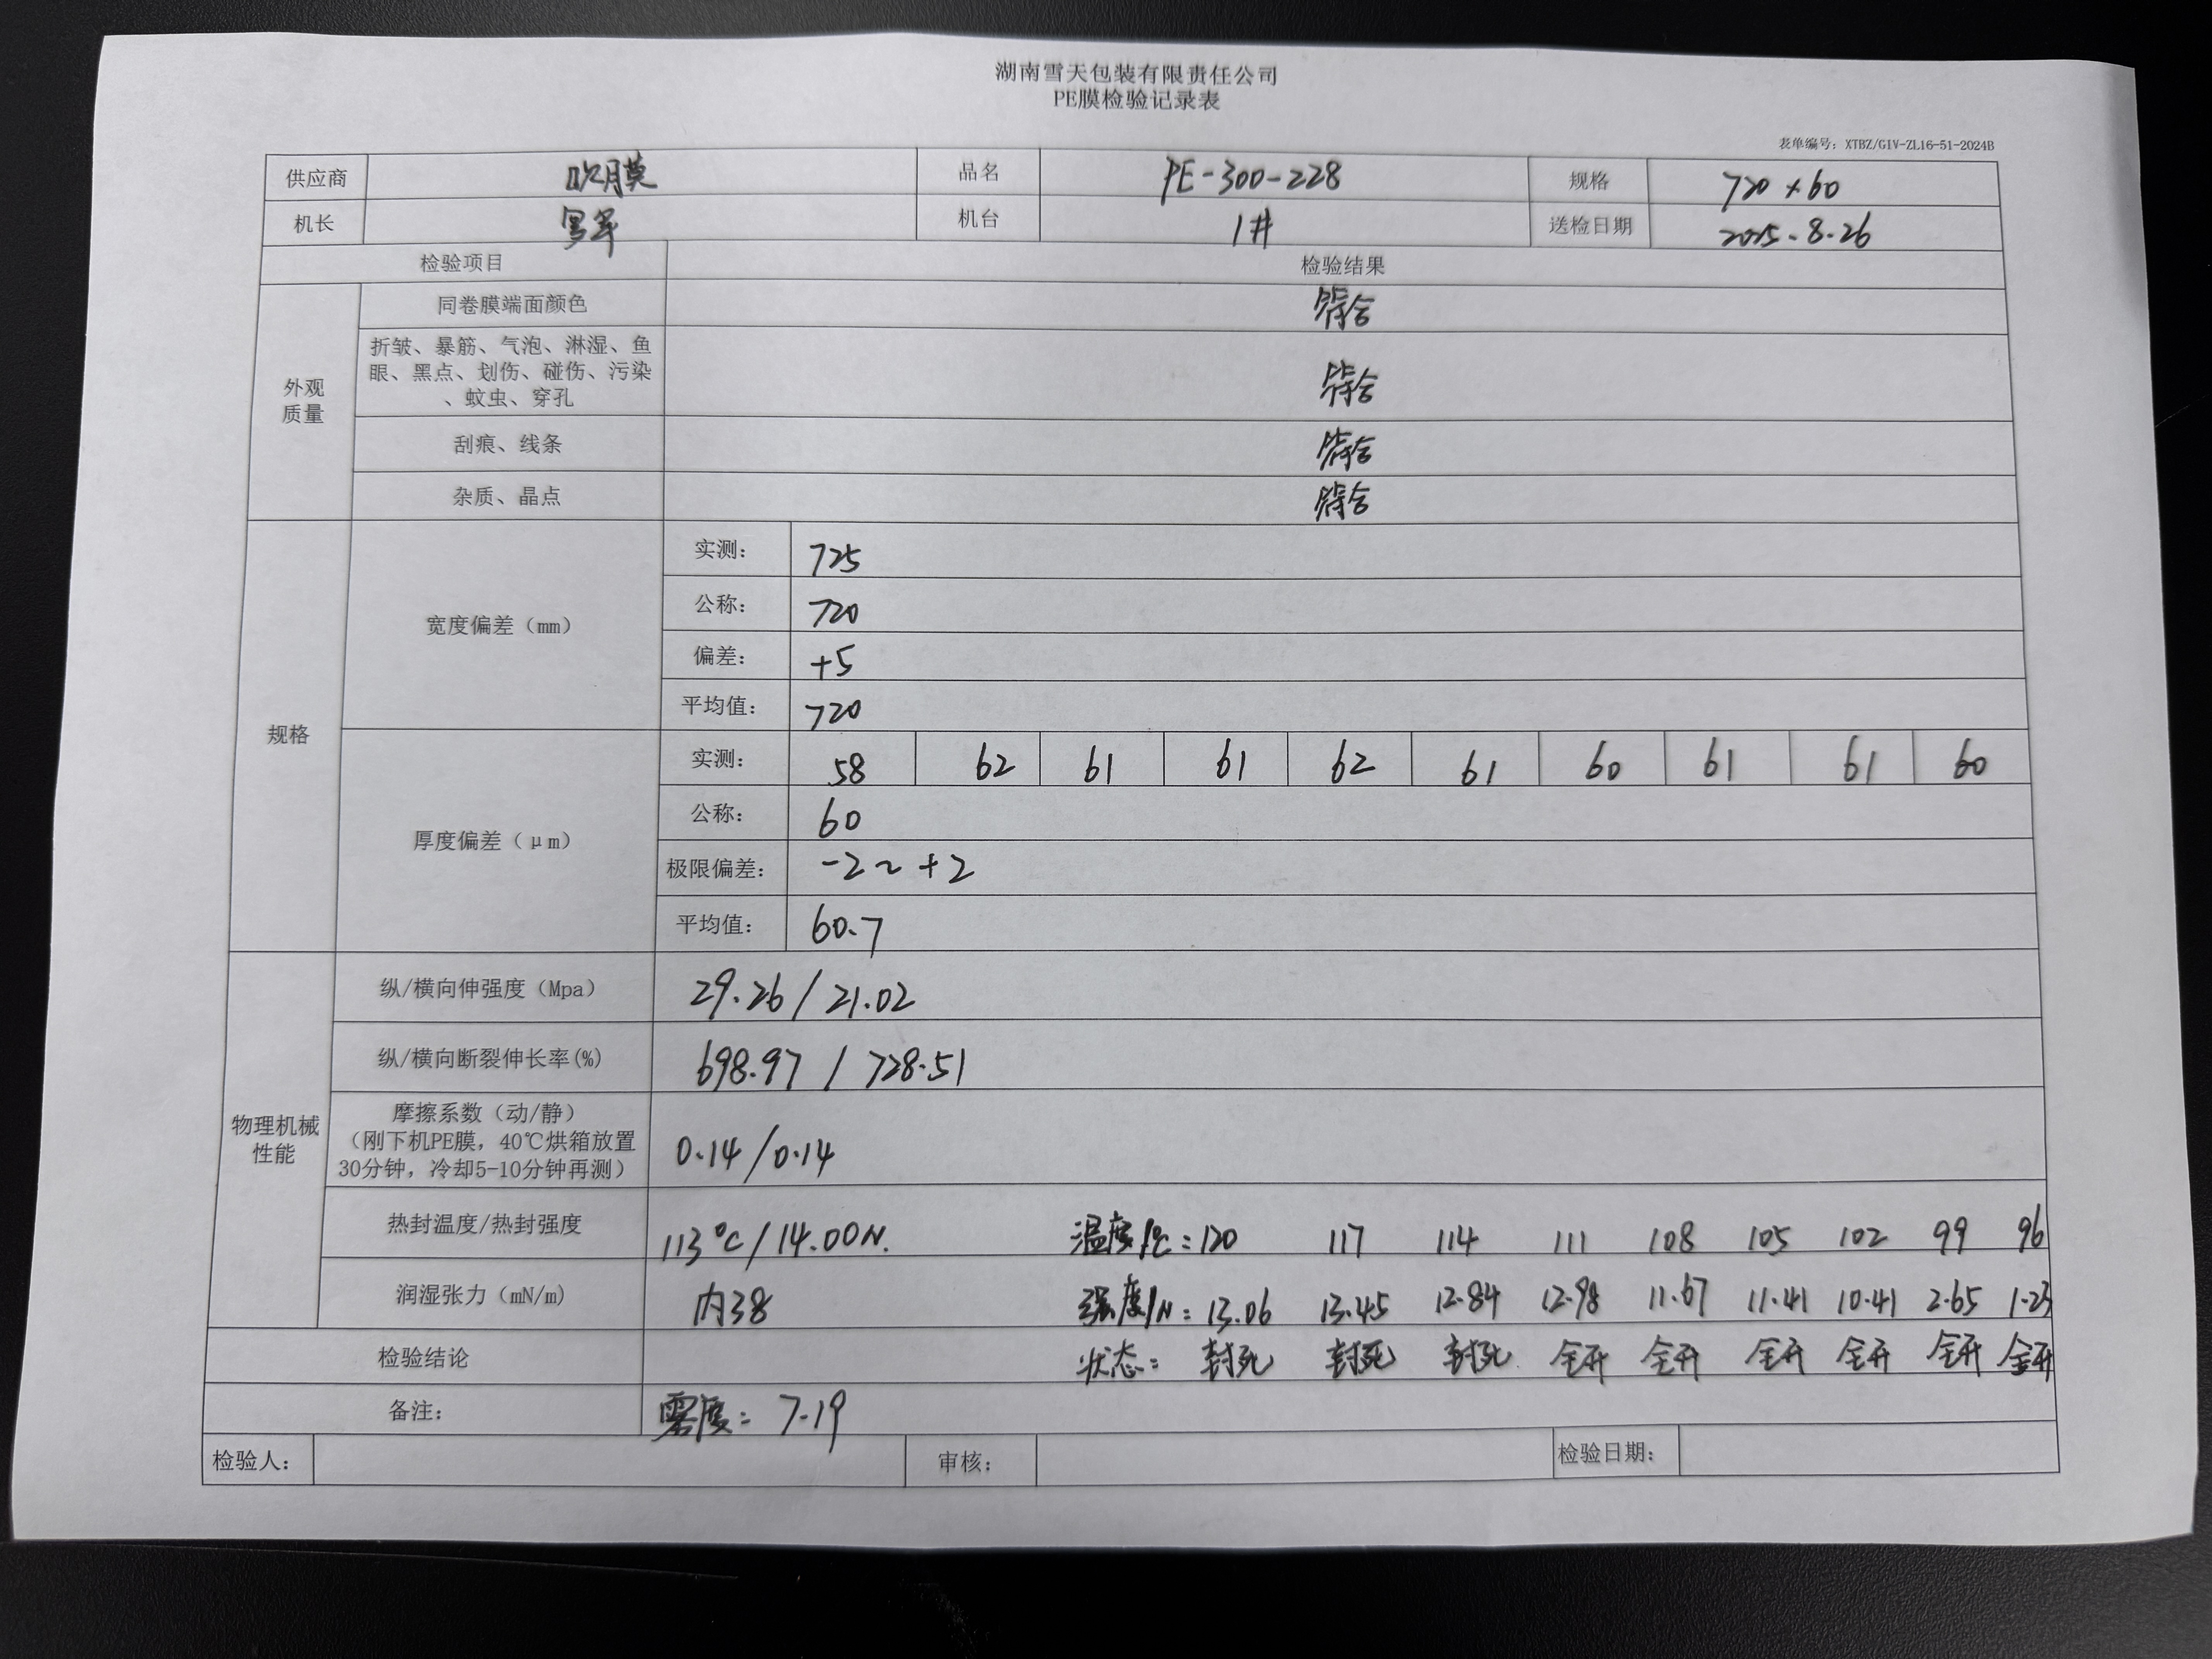 湖南雪天包装有限责任公司
PE膜检验记录表
表单编号：XTBZ/GIV-ZL16-51-2024B
供应商 吹膜 品名 PE-300-228 规格 720×60
机长 机台 1# 送检日期 2025.8.26
检验项目 检验结果
外观质量
同卷膜端面颜色 符合
折皱、暴筋、气泡、淋湿、鱼
眼、黑点、划伤、碰伤、污染
、蚊虫、穿孔 符合
刮痕、线条 符合
杂质、晶点 符合
规格
宽度偏差（mm）
实测： 725
公称： 720
偏差： +5
平均值： 720
厚度偏差（μm）
实测： 58 62 61 61 62 61 60 61 61 60
公称： 60
极限偏差： -2~+2
平均值： 60.7
物理机械性能
纵/横向伸强度（Mpa） 29.26/21.02
纵/横向断裂伸长率(%) 698.97/728.51
摩擦系数（动/静）
（刚下机PE膜，40℃烘箱放置
30分钟，冷却5-10分钟再测） 0.14/0.14
热封温度/热封强度 113℃/14.00N. 温度/℃：120 117 114 111 108 105 102 99 96
润湿张力（mN/m） 内38 强度/N：13.06 13.45 12.84 12.98 11.67 11.41 10.41 2.65 1.23
检验结论 状态：封死 封死 封死 全开 全开 全开 全开 全开 全开
备注： 雾度：7.19
检验人： 审核： 检验日期：